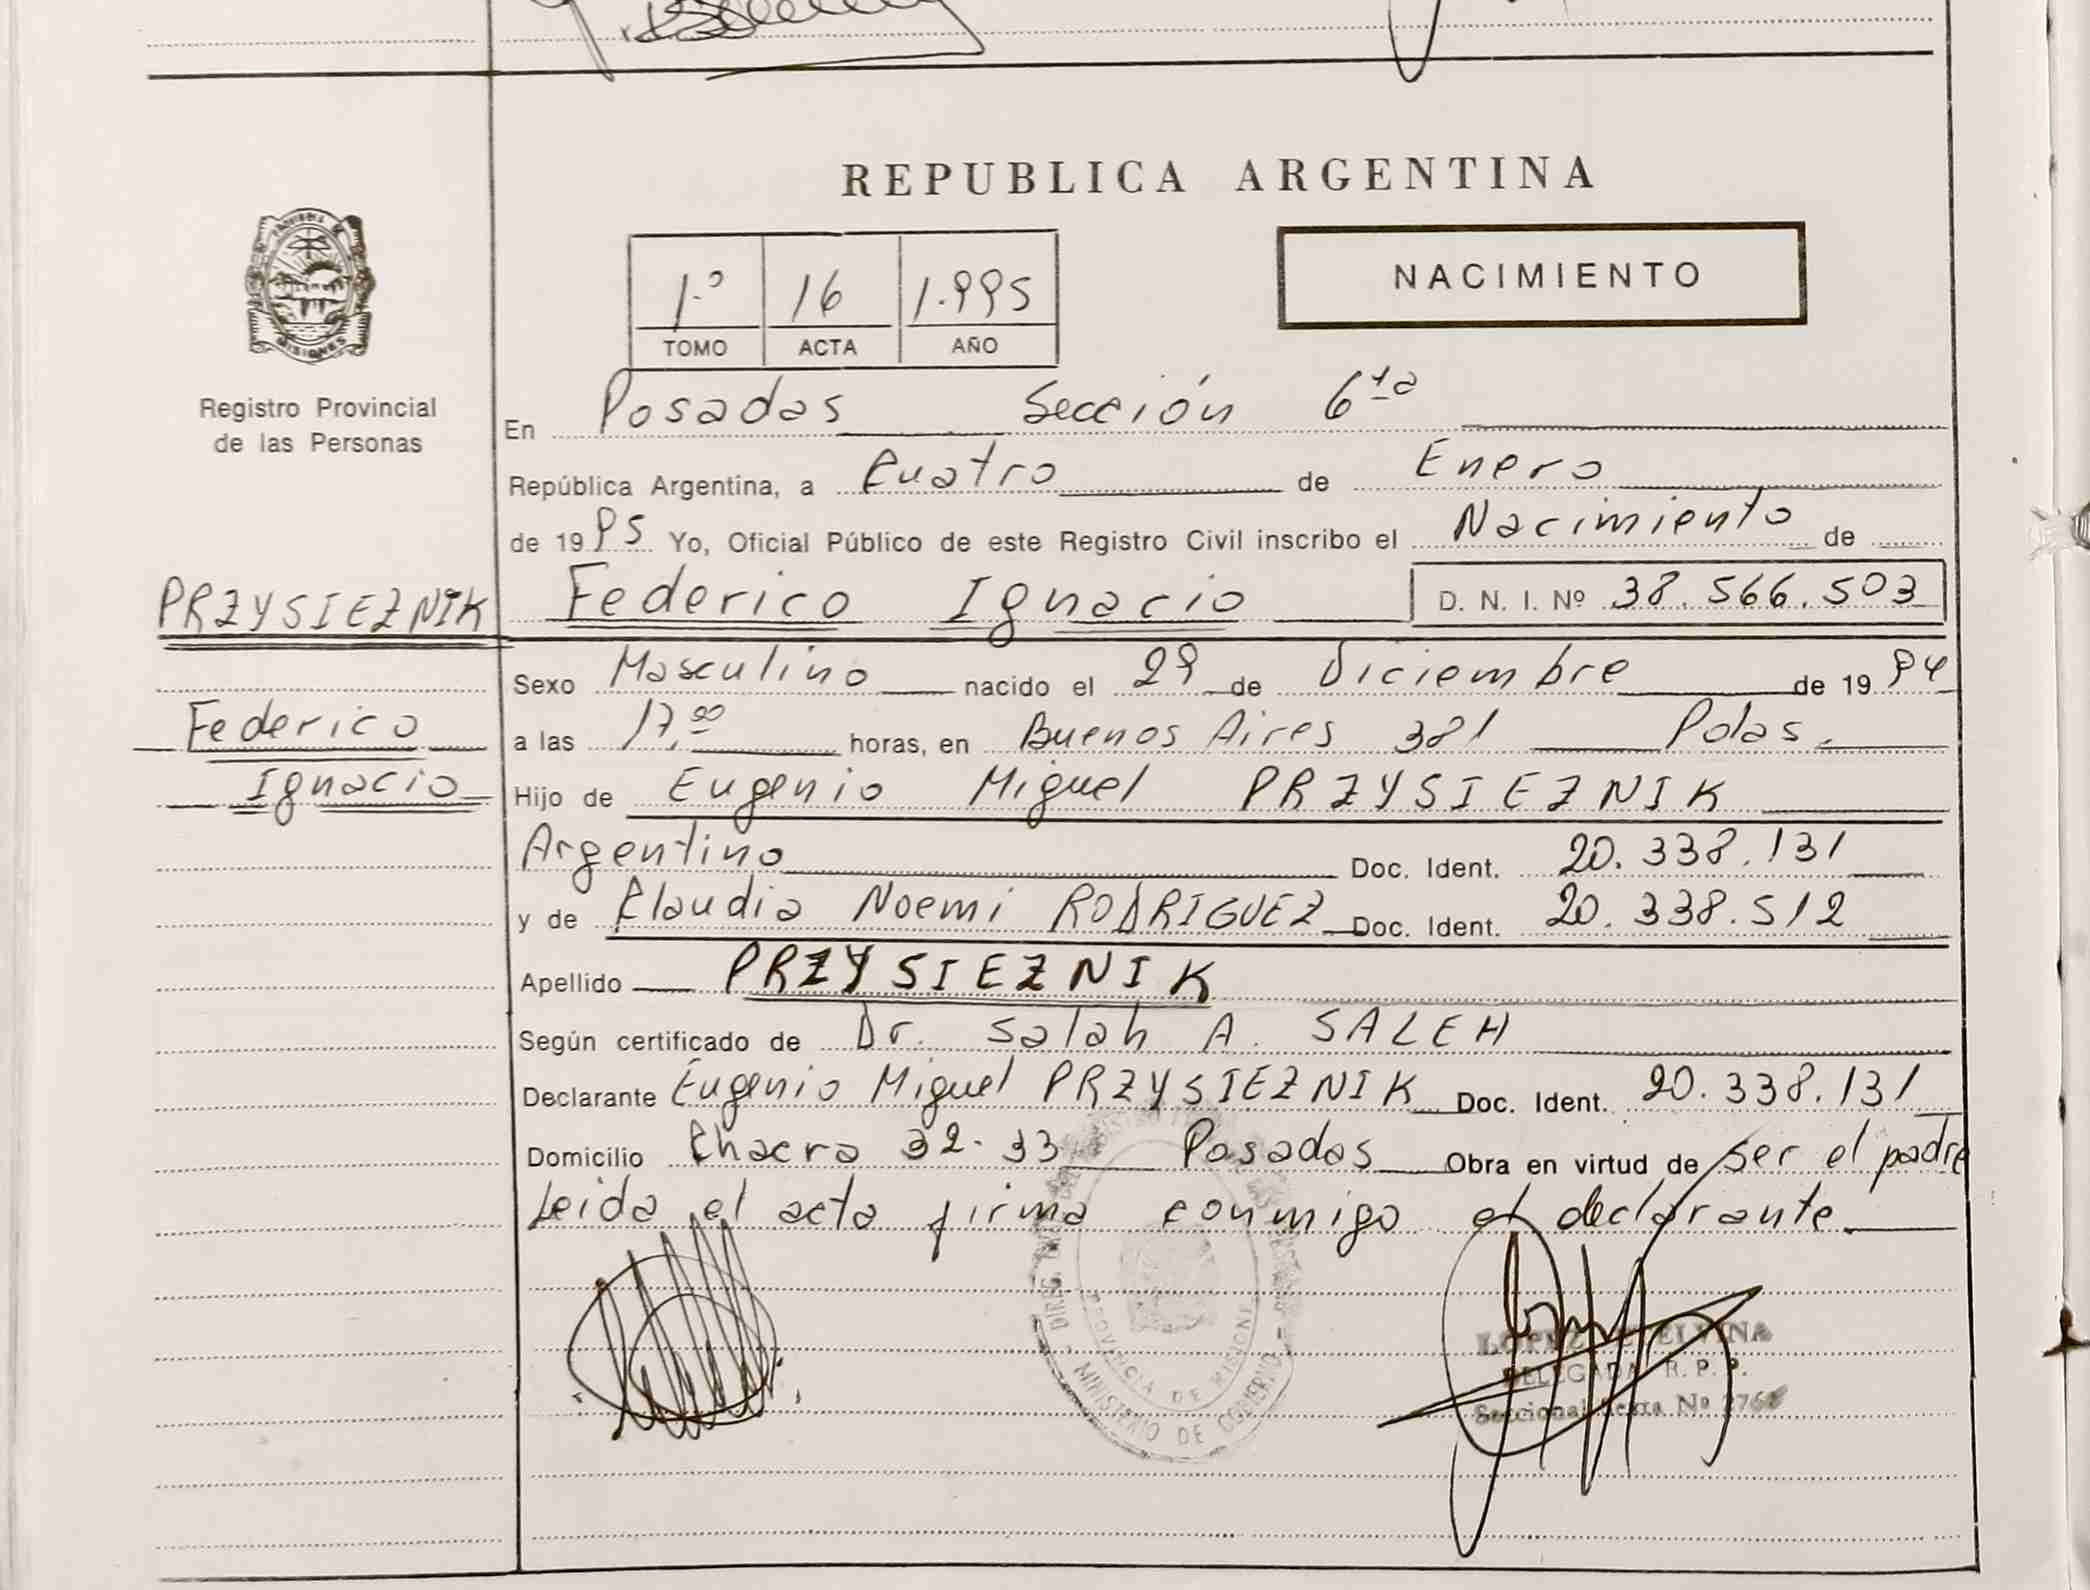 REPUBLICA ARGENTINA
MISIONES
Registro Provincial
de las Personas
1.º 16 1.995
TOMO ACTA AÑO
NACIMIENTO
En Posadas Sección 6ta
República Argentina, a Cuatro de Enero
de 1995 Yo, Oficial Público de este Registro Civil inscribo el Nacimiento de
PRZYSIEZNIK Federico Ignacio D. N. I. Nº 38.566.503
Sexo Masculino nacido el 29 de Diciembre de 1994
Federico
a las 17,00 horas, en Buenos Aires 381 Pdas.
Ignacio
Hijo de Eugenio Miguel PRZYSIEZNIK
Argentino Doc. Ident. 20.338.131
y de Claudia Noemi RODRIGUEZ Doc. Ident. 20.338.512
Apellido PRZYSIEZNIK
Según certificado de Dr. Salah A. SALEH
Declarante Eugenio Miguel PRZYSIEZNIK Doc. Ident. 20.338.131
Domicilio Chacra 32-33 Posadas Obra en virtud de ser el padre
Leida el acta firma conmigo el declarante
PROVINCIA DE MISIONES
MINISTERIO DE GOBIERNO
LOPEZ
DELEGADA R. P. P.
Seccional Sexta Nº